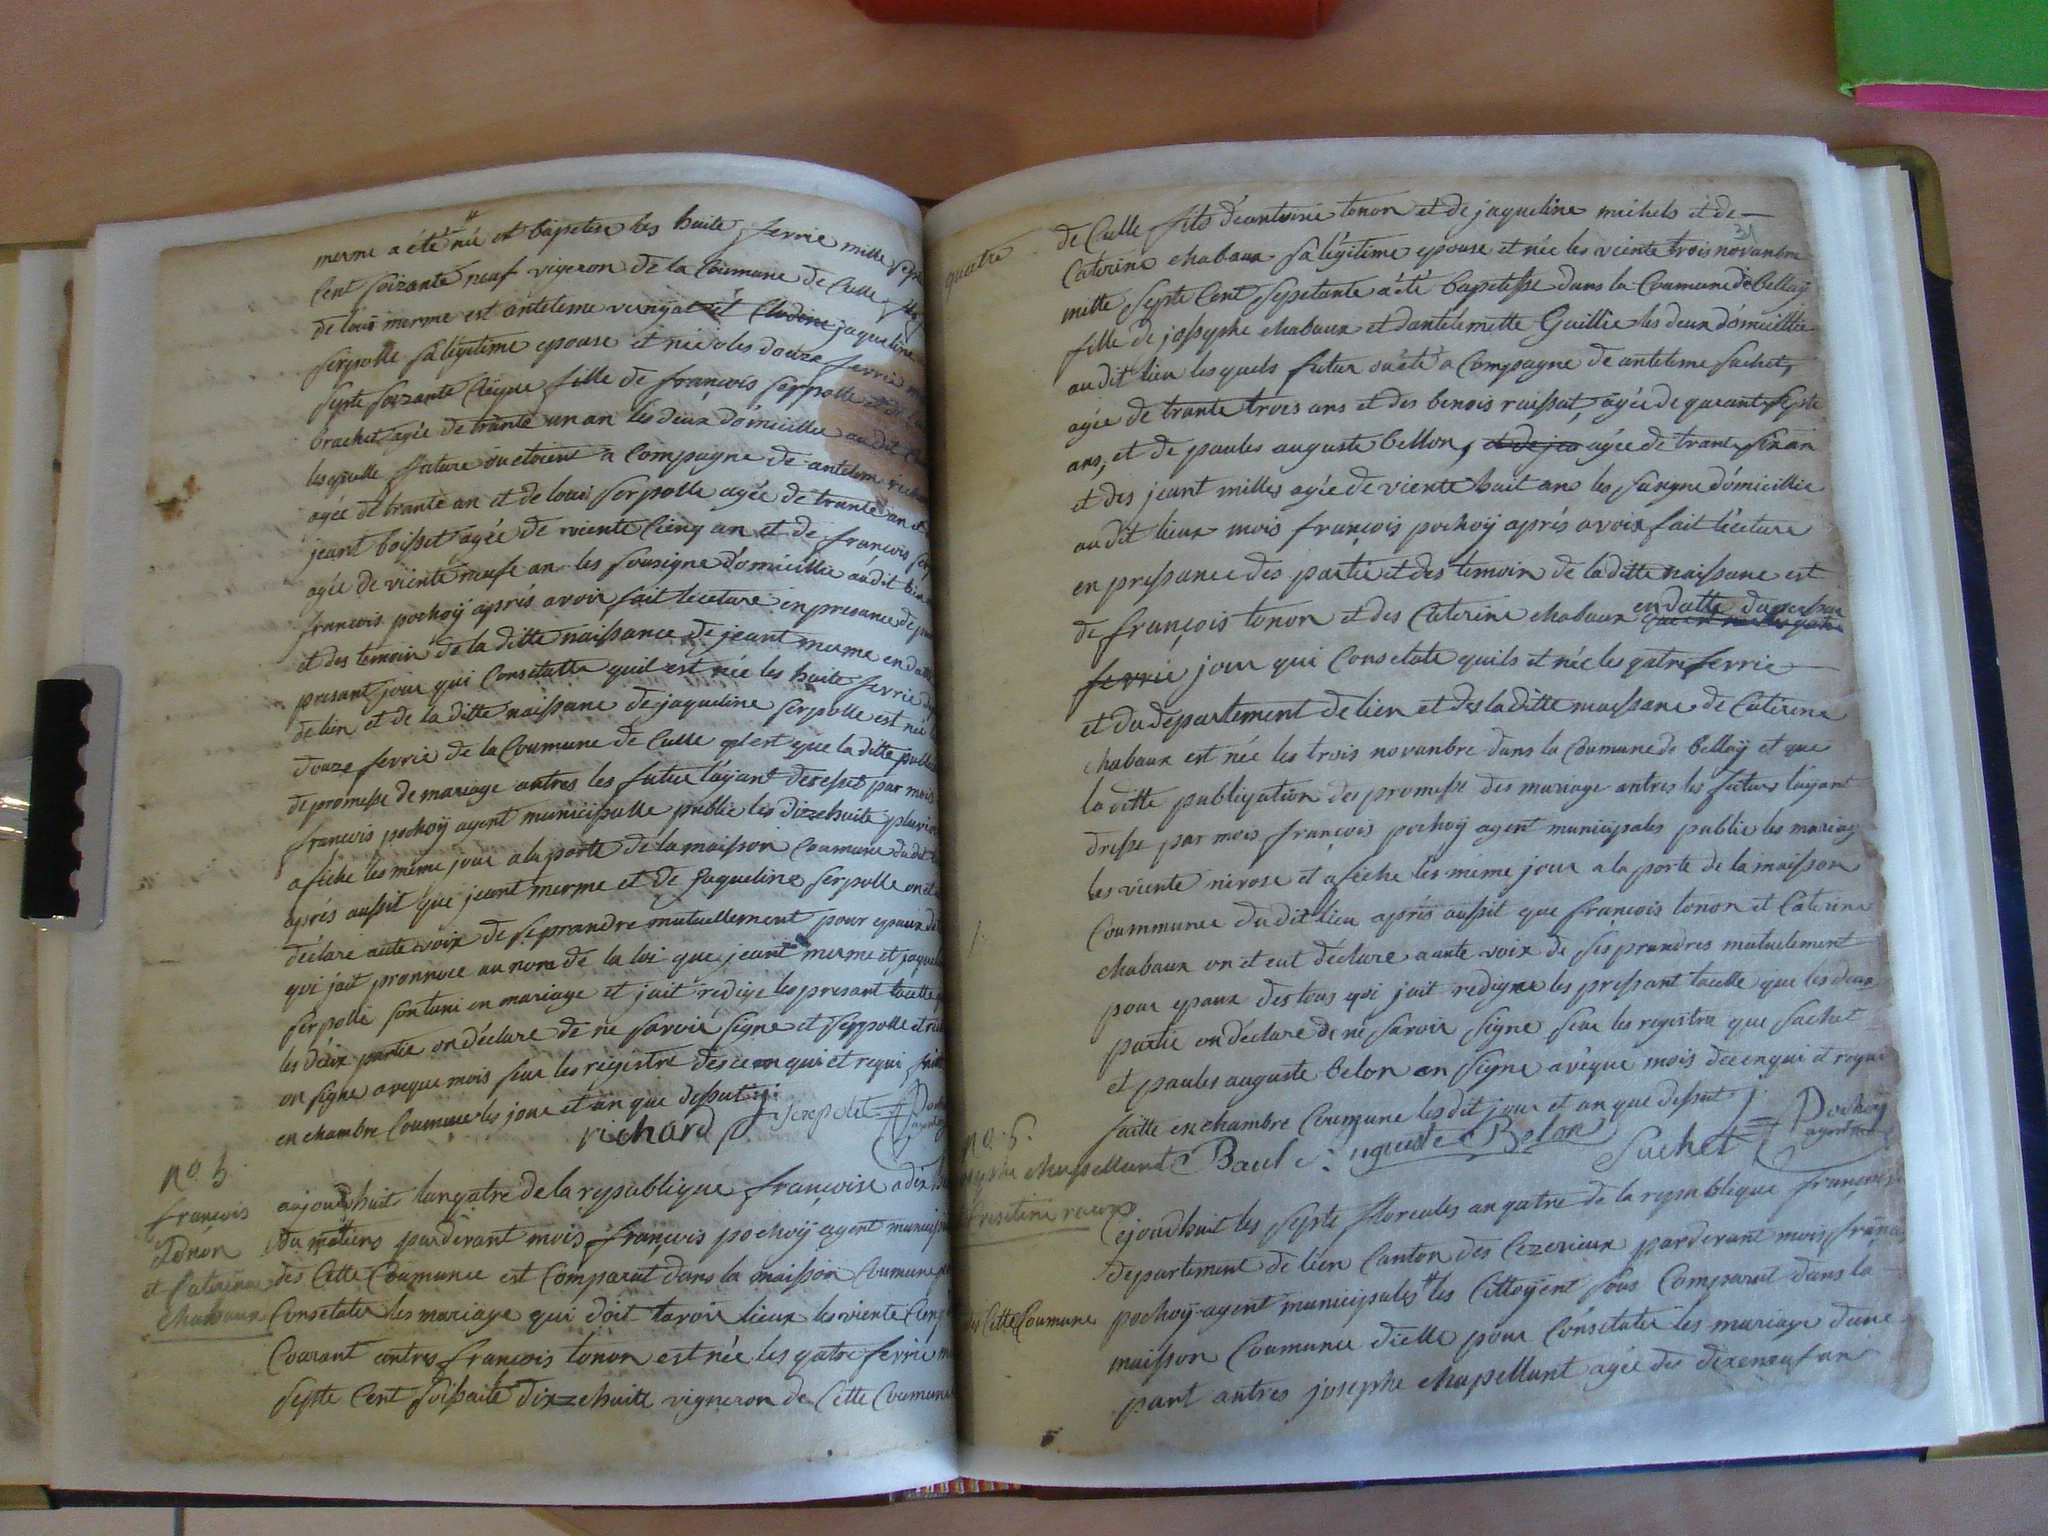 merme a été né et bapetise les huite ferrie mille septe
Cent soizante neuf vigeron de la Coumune de Culle fils
de loui merme est anteleme vernyat et Cludine jaqueline
serpolle sa legitime epouse et née les douze ferrie
septe soizante Cleque fille de francois serpolle et de
brachet agée de trante un an les deux domicillie au dit
lesquelle future ou etoient a Compagne de antelem richar
agée de trante an et de loui serpolle agée de trante an et
jeant boisset agée de viente Cienq an et de francois
agée de viente neufe an les sousigne domicillie audit lieu
francois pochoÿ aprés avoir fait lecture en presance de
et des temoin de la ditte naissance de jeant merme en datte
presant jour qui Consetatte quil est née les huite ferrie
de lien et de la ditte naissane de jaqueline serpolle est née
douze ferrie de la Coumune de Culle qd est que la ditte publi
de promesse de mariage antres les futur laÿant deressit par mois
francois pochoÿ agent municipalle publie les dizehuite pluvios
afiche les même jour a la porte de la maisson Coumune du dit
aprés aussit que jeant merme et de jaqueline serpolle on et
déclare aute voix de se prandre mutuellement pour epoux
qui jait pronnoce au nom de la loi que jeant merme et jaque
serpolle sont uni en mariage et jait redige les presant lacette
les deux partie on déclare de ne savoir signe et serpolle et
on signe aveque mois sur les registre desceen qui et requi
en chambre Coumune les jour et an que dessut
richard serpolet Pochoÿ
n.o 5.
francois
tonon
et Caterine
Chabaux
aujourdhuit lanqatre de la republique francoise a dix
du matiens parderant mois francois pochoÿ agent municip
des Cette Coumune est Comparut dans la maisson Coumune
Consetater les mariage qui doit lavoir lieux les viente Cienq
Courant entres francois tonon est née les qatre ferrie
septe Cent soissante dixzehuite vigneron de Cette Coumune
31
quatre
de Culle fils deantoine tonon et de jaqueline michels et de
Caterine chabaux sa légitime epouse et née les viente trois novanbre
mille septe Cent sepetante a été bapetisse dans la Coumune de bellaÿ
fille de jossephe chabaux et dantelemette Gaillie les deux domicillie
au dit lieu les quels futur ou été a Compagne de anteleme sachet
agée de trante trois ans et des benois raissat, agée de qarant septe
ans, et de paules auguste bellon, et de jea agée de trante sixan
et des jeant milles agée de viente huit ans les sinsigne domicillie
au dit lieux mois françois pochoÿ aprés avoir fait lécture
en pressance des partie et des temoin de la ditte naissane est
de françois tonon et des Caterine chabaux en datte du pressan
ferrie jour qui Consetate quils et née les qatre ferrie
et du departement de lien et des la ditte naissane de Caterine
chabaux est née les trois novanbre dans la Coumune de bellaÿ et que
la ditte publiqation des promesse des mariage antres les futurs laÿant
dresse par mois françois pochoÿ agent municipales publie les mariag
les viente nivose et afiéche les même jour a la porte de la maisson
Coummunee du dit lieu aprés aussit que françois tonon et Caterine
chabaux on et eut declare aante voix de ses prandres mutuelement
pour epaux des tous qui jait redigne les pressant lacelle que les deux
partie on déclare de ne savoir signe sur les registre que sachet
et paules auguste belon on signe avéque mois deeen qui et requi
faitte en chambre Coumune les dit jour et an que dessut
Baul auguste Belon Sachet Pochoÿ
no. 6.
chapellant
cristine raux
ejourdhuit les septe floreales an qatre de la republique françois
departement de lien Canton des Cezerieux parderant mois françois
pochoÿ agent municipales les Cittoÿent sous Comparut dans la
des Cette Coumune
maisson Coumunee dielle pour Consetater les mariage dune
part antres josephe chapellant agée des dixeneuf an